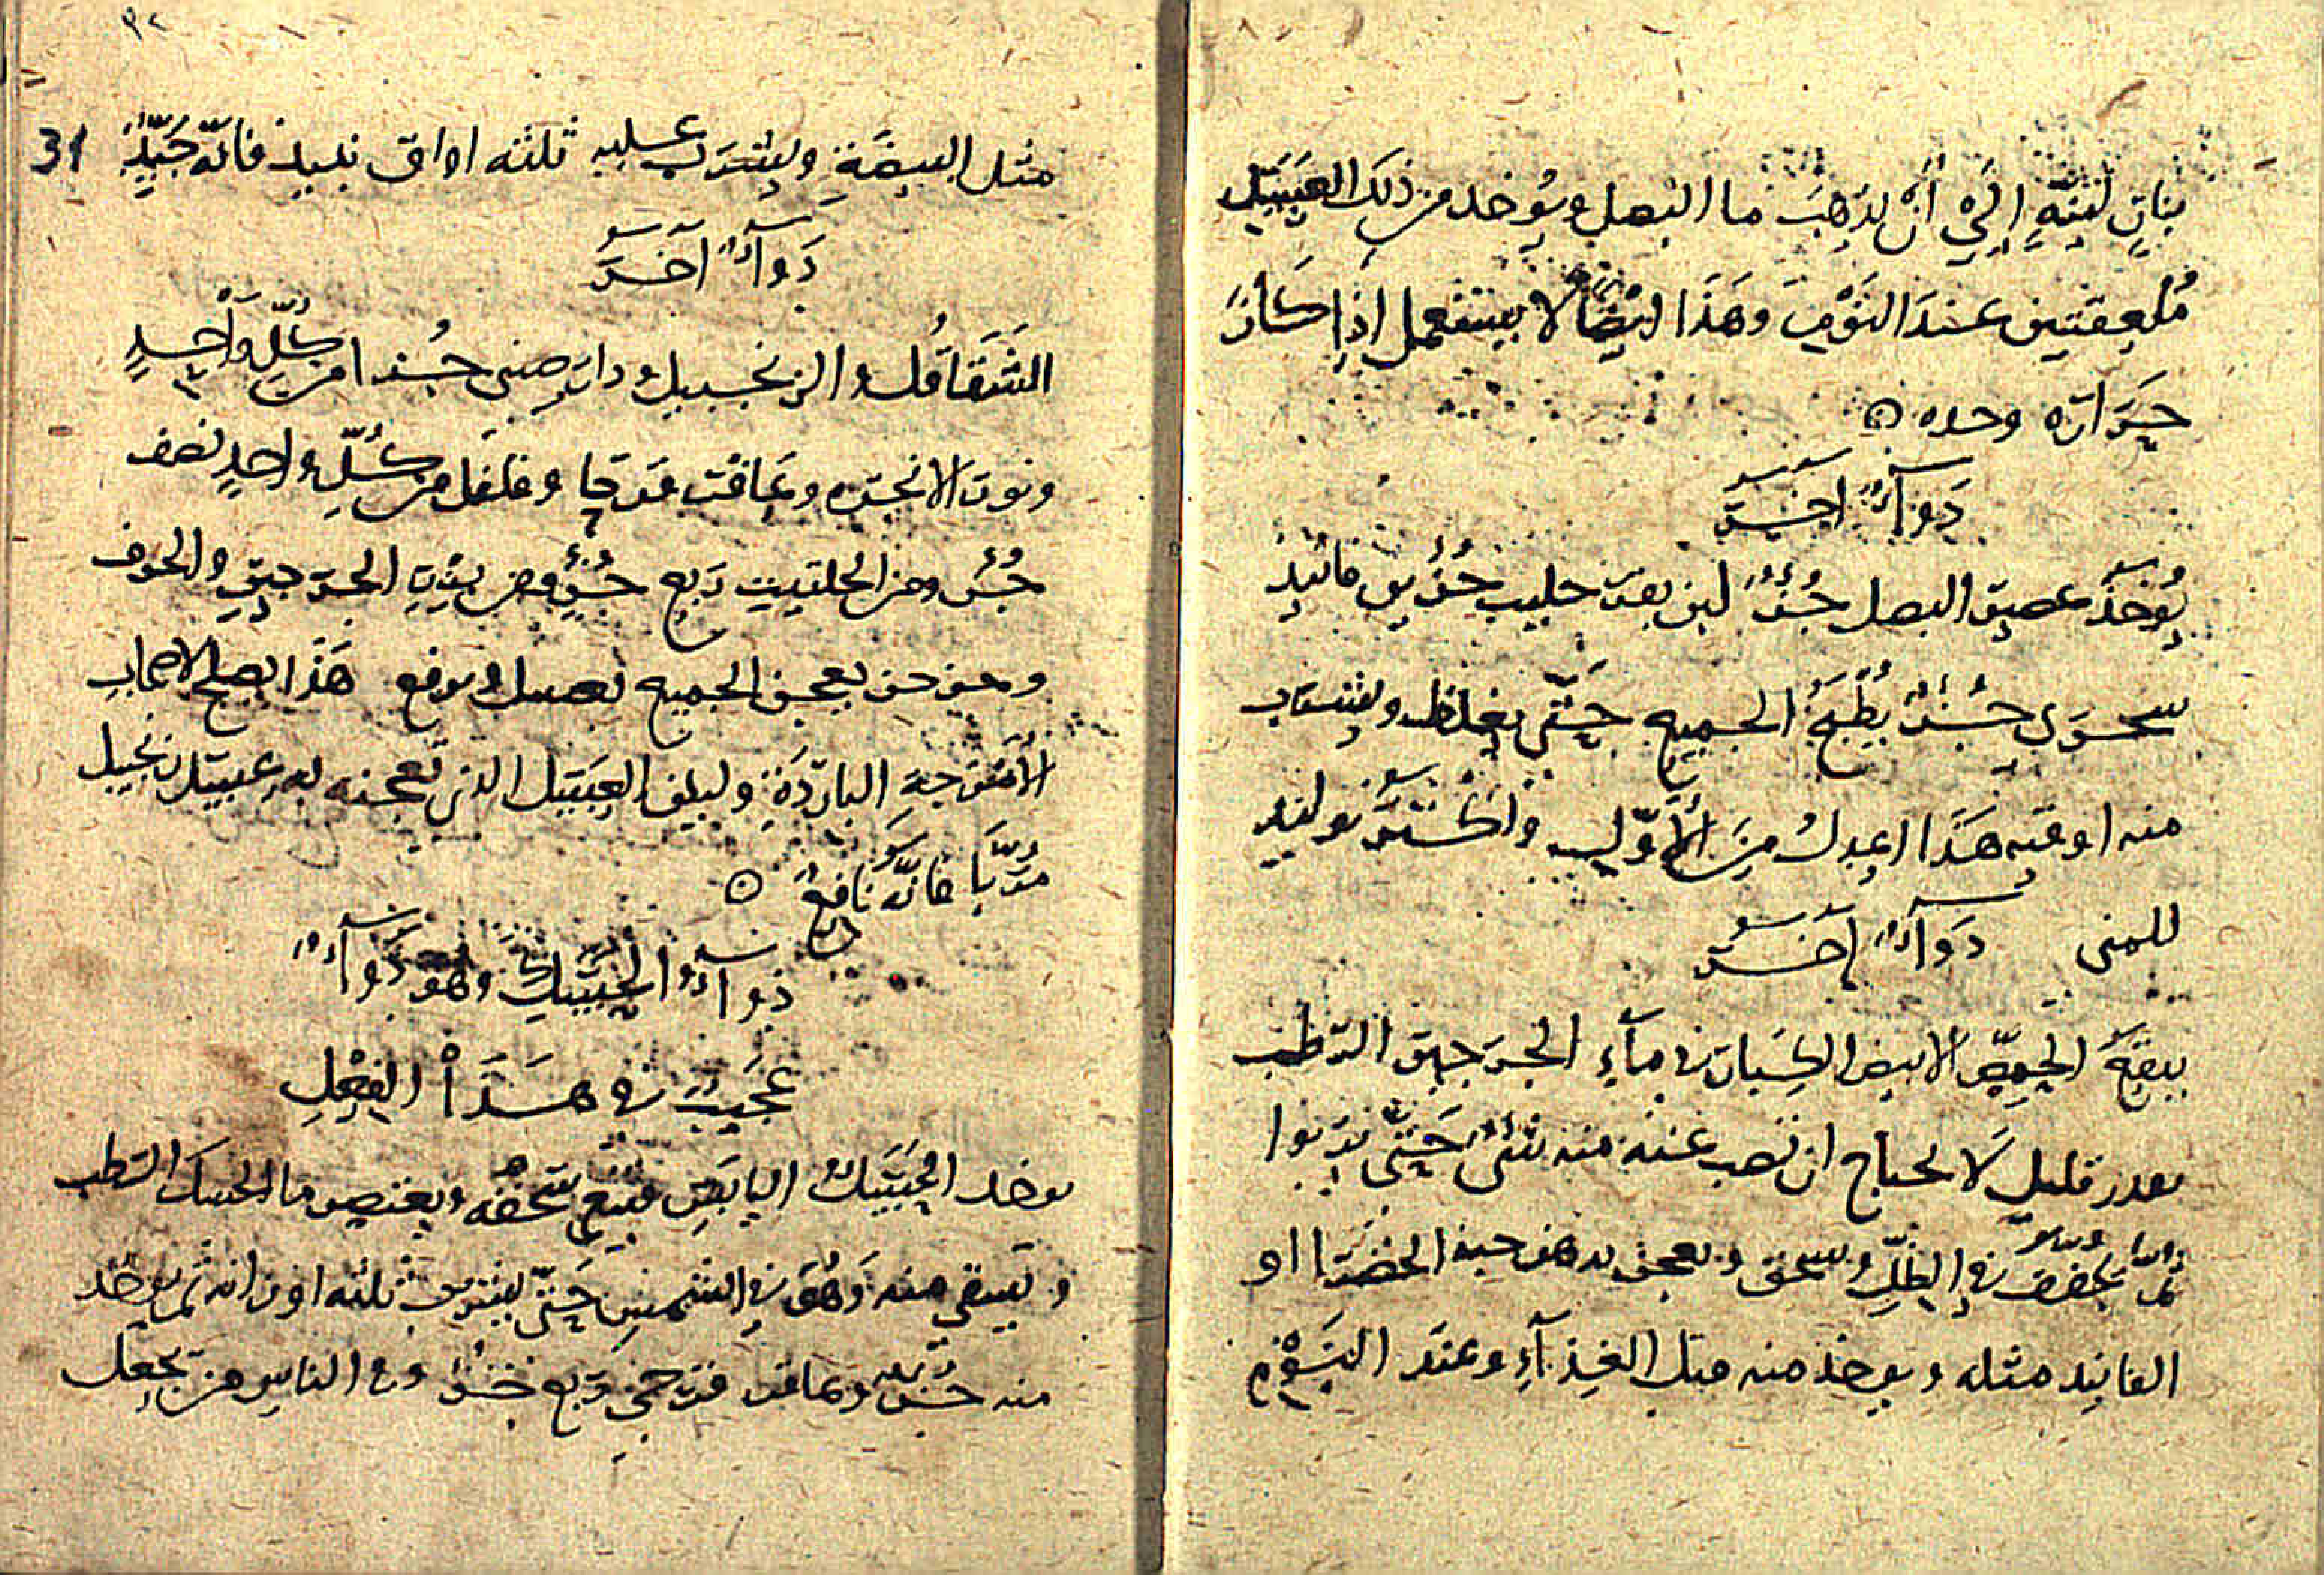 بنارٍ لينةٍ إلى أن يذهبَ ما البصل ويُوخد من ذلك العَسَل
مُلعقتين عندَ النَوْم وهَذَا ايضًا لا يستعمل اذا كانَ
حَرارَه وحده
دَوآءٌ اخَر
يُوخَذ عصير البصل جُزءٌ لبن بقر حليب جزءين فانيد
سحرى جُزءٌ يُطْبَخُ الجميع حَتّى يغلظ ويشرب
منه اوقيه هَذَا اعدلُ مِنَ الأوّلِ واكثر توليد
للمنى دَوآءٌ اخَر
ينقعَ الحِمصّ الابيض الكبار فى مآءِ الجرجير الرطب
بقدر قليل لا يحتاج ان تصب عنه منه شئ حَتّى يربوا
ثم يجفف فى الظلّ ويسحق ويعجن بدهن حبه الخضرا او
الفانيد مثله ويوخذ منه قبل الغِذآءِ وعندَ النَوْمِ
٣٢
31
مثل البيضَة ويشرَب عليه ثلثه اواق نبيذ فانّه جَيّدٌ
دَوآءٌ آخَر
الشَقَاقُل والزنجبيل ودار صينى جُزءا من كُلّ وَاحِدٍ
وبزر الانجره وعاقر قرحا وفلفل من كُلّ واحدٍ نصف
جُزء ومن الحلتيت رَبع جُزء ومن بزر الجرجير والحرف
وجزر يعجن الجميع بعسل ويرفع هَذَا يصلح لاصحاب
الأمزجةِ البارِدَة وليكن العَسَل الذى تعجنه به عسل زنجبيل
مُرَبَّا فانّه نَافِعٌ
دَوآءُ الحَسَكِ وهو دَوآءٌ
عجَيبٌ فى هَذَا الفِعْلِ
يوخد الحَسَكُ اليابَس فيُنعم سَحقُه ويعتصر ما الحسك الرطب
ويَسقي منه وَهُوَ فى الشمسِ حَتّى يشرب ثلثه اوزانه ثم يوخد
منه جُزء وعاقر قرحى رَبع جُزء وفى الناسِ من يَجعل